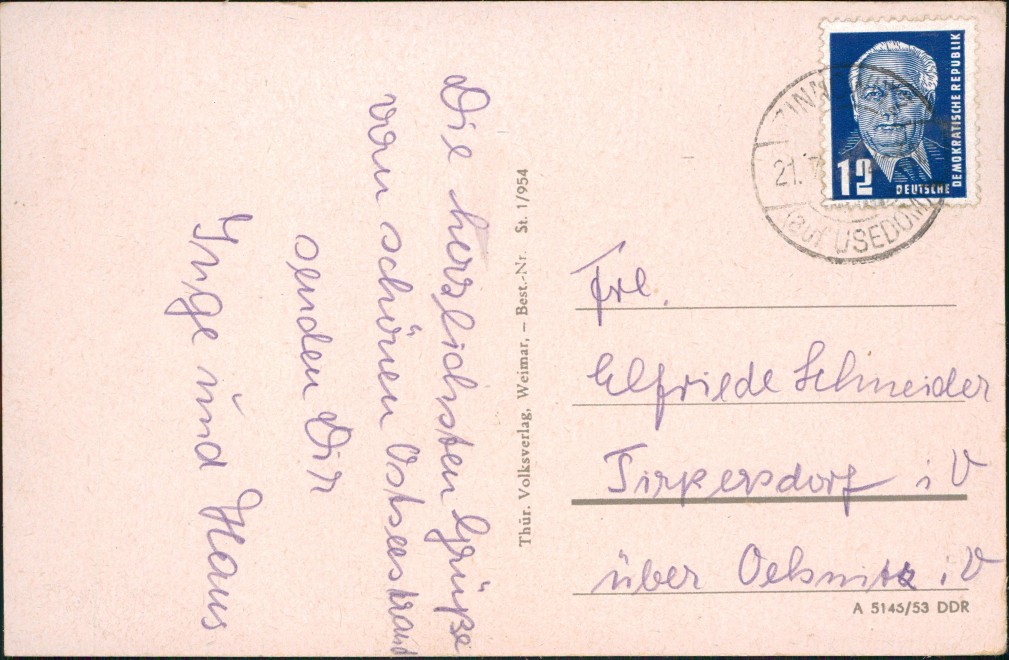 Die herzlichsten Grüße
vom schönen Ostseestrand
senden Dir
Inge und Hans
Thür. Volksverlag, Weimar, – Best.-Nr. St. 1/954
12
DEUTSCHE
DEMOKRATISCHE REPUBLIK
21.
(auf USEDOM)
Frl.
Elfriede Schneider
Tirpersdorf i V
über Oelsnitz i. V
A 5145/53 DDR